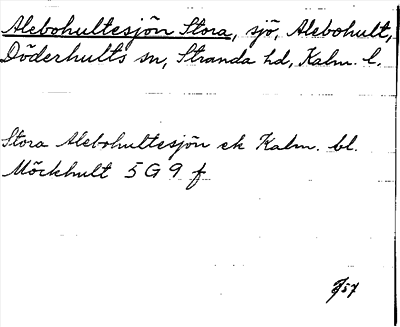 Alebohultesjön Stora, sjö, Alebohult,
Döderhults sn, Stranda hd, Kalm. l.
Stora Alebohultesjön ek Kalm. bl.
Möckhult 5 G 9 f
57